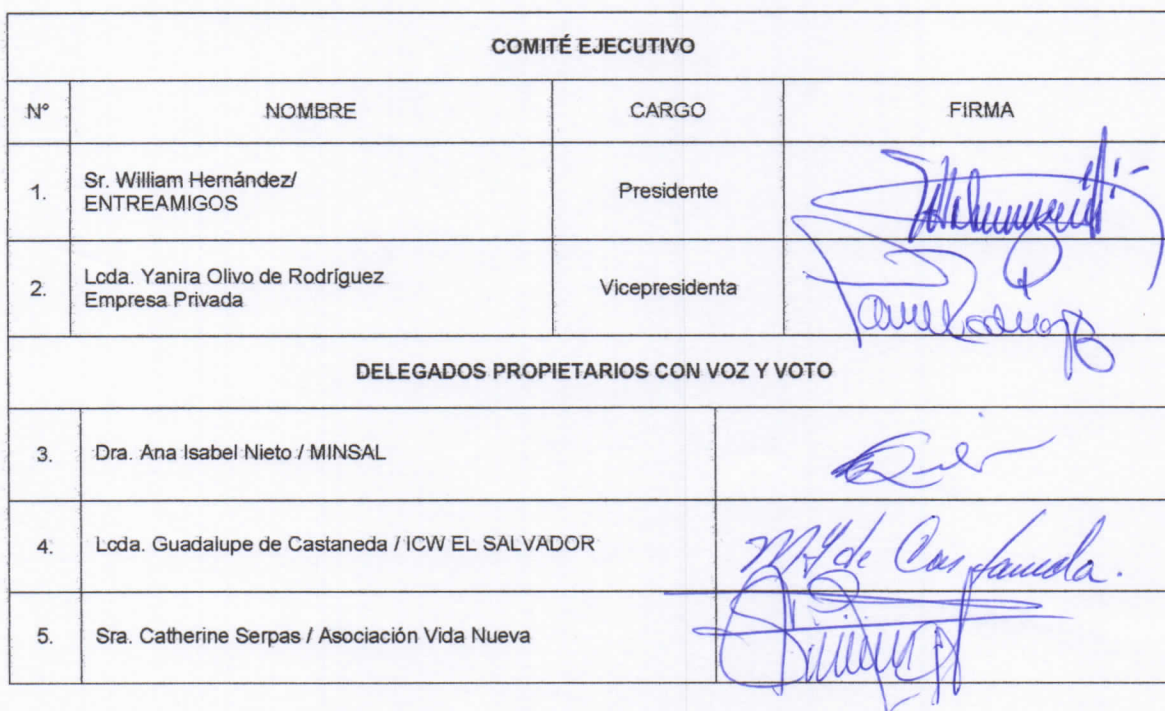 COMITÉ EJECUTIVO
N° NOMBRE CARGO FIRMA
1. Sr. William Hernández/
ENTREAMIGOS Presidente
2. Lcda. Yanira Olivo de Rodríguez
Empresa Privada Vicepresidenta
DELEGADOS PROPIETARIOS CON VOZ Y VOTO
3. Dra. Ana Isabel Nieto / MINSAL
4. Lcda. Guadalupe de Castaneda / ICW EL SALVADOR
5. Sra. Catherine Serpas / Asociación Vida Nueva